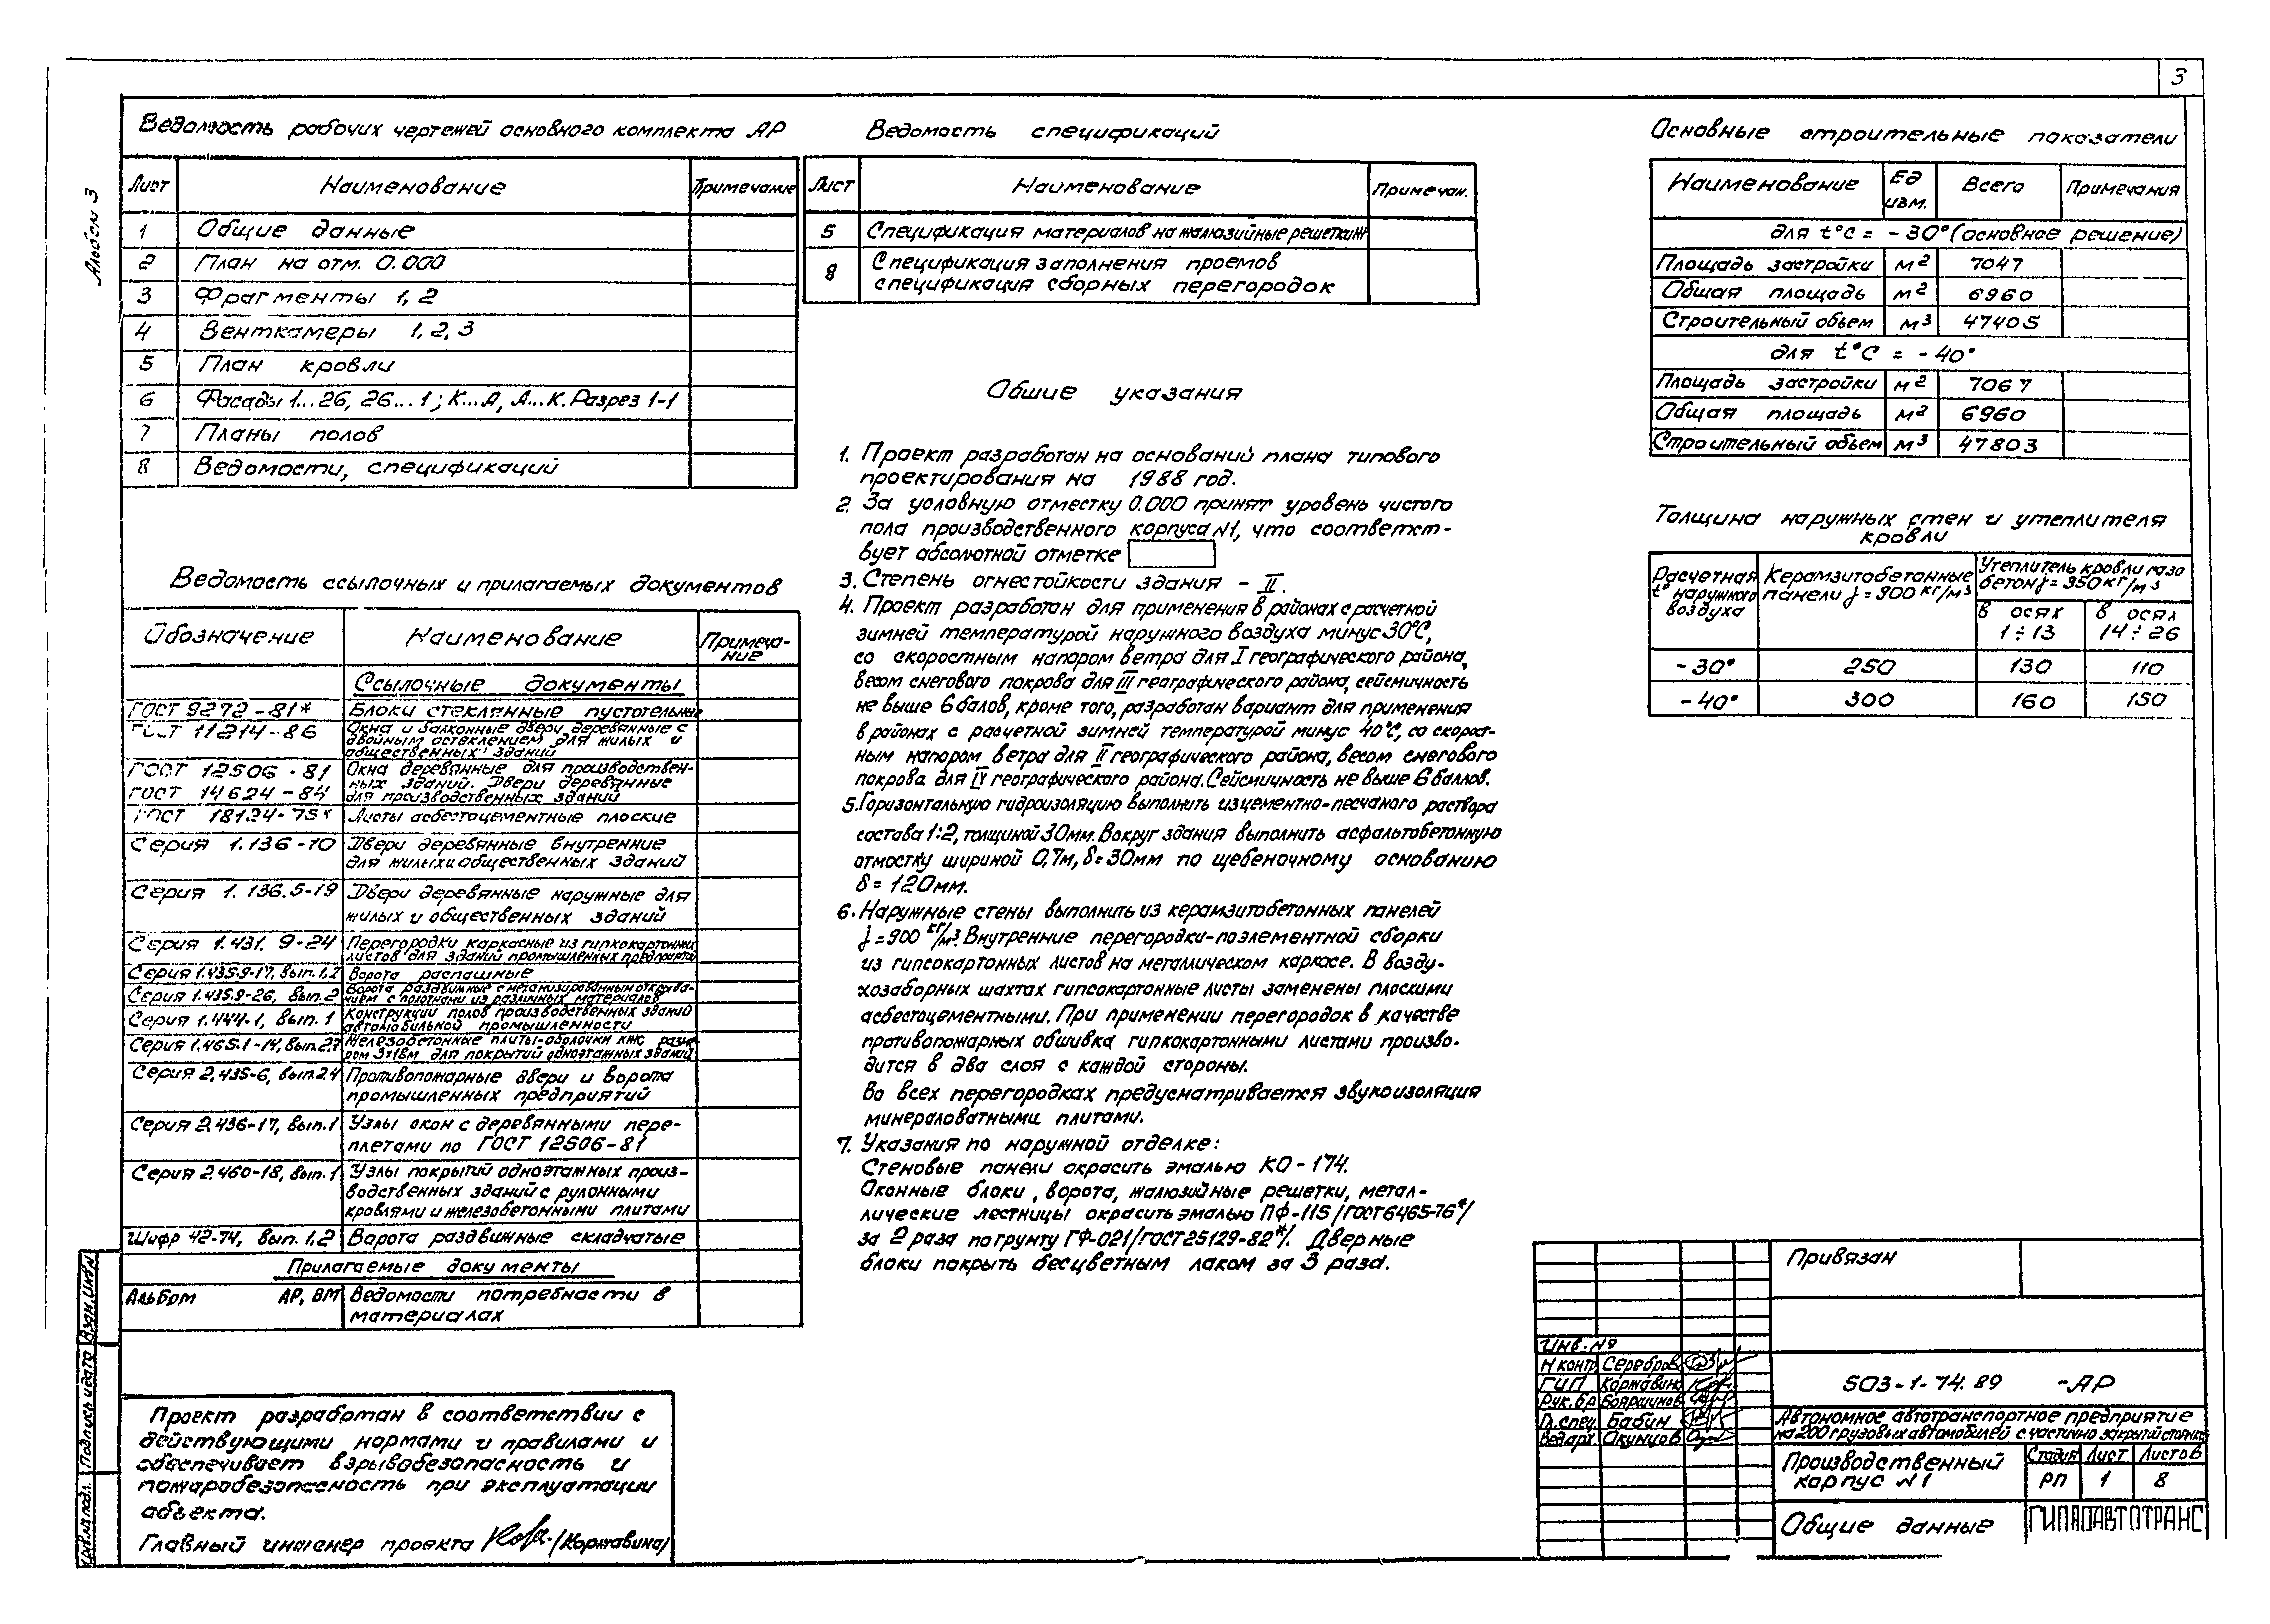 3
Альбом 3
Ведомость рабочих чертежей основного комплекта АР
Лист Наименование Примечание
1 Общие данные
2 План на отм. 0.000
3 Фрагменты 1, 2
4 Венткамеры 1, 2, 3
5 План кровли
6 Фасады 1...26, 26...1; К...А, А...К. Разрез 1-1
7 Планы полов
8 Ведомости, спецификаций
Ведомость ссылочных и прилагаемых документов
Обозначение Наименование Примеча-
ние
Ссылочные документы
ГОСТ 9272-81* Блоки стеклянные пустотелые
ГОСТ 11214-86 Окна и балконные двери деревянные с
двойным остеклением для жилых и
общественных зданий
ГОСТ 12506-81 Окна деревянные для производствен-
ных зданий. Двери деревянные
ГОСТ 14624-84 для производственных зданий
ГОСТ 18124-75* Листы асбестоцементные плоские
Серия 1.136-10 Двери деревянные внутренние
для жилых и общественных зданий
Серия 1.136.5-19 Двери деревянные наружные для
жилых и общественных зданий
Серия 1.431.9-24 Перегородки каркасные из гипкокартонных
листов для зданий промышленных предприятий
Серия 1.435.9-17, вып.1,2 Ворота распашные
Серия 1.435.9-26, вып.2 Ворота раздвижные с механизированным открыва-
нием с полотнами из различных материалов
Серия 1.444-1, вып.1 Конструкции полов производственных зданий
автомобильной промышленности
Серия 1.465.1-14, вып.2,7 Железобетонные плиты-оболочки КЖС разме-
ром 3х18м для покрытий одноэтажных зданий
Серия 2.435-6, вып.2.4 Противопожарные двери и ворота
промышленных предприятий
Серия 2.436-17, вып.1 Узлы окон с деревянными пере-
плетами по ГОСТ 12506-81
Серия 2.460-18, вып.1 Узлы покрытий одноэтажных произ-
водственных зданий с рулонными
кровлями и железобетонными плитами
Шифр 42-74, вып.1,2 Ворота раздвижные складчатые
Прилагаемые документы
Альбом АР, ВМ Ведомости потребности в
материалах
Проект разработан в соответствии с
действующими нормами и правилами и
обеспечивает взрывобезопасность и
пожаробезопасность при эксплуатации
объекта.
Главный инженер проекта /Коржавина/
Ведомость спецификаций
Лист Наименование Примечан.
5 Спецификация материалов на жалюзийные решетки
8 Спецификация заполнения проемов
спецификация сборных перегородок
Общие указания
1. Проект разработан на оснований плана типового
проектирования на 1988 год.
2. За условную отместку 0.000 принят уровень чистого
пола производственного корпуса №1, что соответст-
вует абсолютной отметке
3. Степень огнестойкости здания - II.
4. Проект разработан для применения в районах с расчетной
зимней температурой наружного воздуха минус 30°С,
со скоростным напором ветра для I географического района,
весом снегового покрова для III географического района, сейсмичность
не выше 6 балов, кроме того, разработан вариант для применения
в районах с расчетной зимней температурой минус 40°С, со скорост-
ным напором ветра для II географического района, весом снегового
покрова для IV географического района. Сейсмичность не выше 6 баллов.
5. Горизонтальную гидроизоляцию выполнить из цементно-песчаного раствора
состава 1:2, толщиной 30мм. Вокруг здания выполнить асфальтобетонную
отмостку шириной 0,7м, δ=30мм по щебеночному основанию
δ=120мм.
6. Наружные стены выполнить из керамзитобетонных панелей
γ=900 кг/м³. Внутренние перегородки-поэлементной сборки
из гипсокартонных листов на металлическом каркасе. В возду-
хозаборных шахтах гипсокартонные листы заменены плоскими
асбестоцементными. При применении перегородок в качестве
противопожарных обшивка гипкокартонными листами произво-
дится в два слоя с каждой стороны.
Во всех перегородках предусматривается звукоизоляция
минераловатными плитами.
7. Указания по наружной отделке:
Стеновые панели окрасить эмалью КО-174.
Оконные блоки, ворота, жалюзийные решетки, метал-
лические лестницы окрасить эмалью ПФ-115 /ГОСТ 6465-76*/
за 2 раза по грунту ГФ-021/ГОСТ 25129-82*/. Дверные
блоки покрыть бесцветным лаком за 3 раза.
Основные строительные показатели
Наименование Ед изм. Всего Примечания
для t°С = -30° (основное решение)
Площадь застройки м² 7047
Общая площадь м² 6960
Строительный объем м³ 47405
для t°С = -40°
Площадь застройки м² 7067
Общая площадь м² 6960
Строительный объем м³ 47803
Толщина наружных стен и утеплителя
кровли
Расчетная t° наружного воздуха Керамзитобетонные панели γ=900 кг/м³ Утеплитель кровли газобетон γ=350 кг/м³
в осях 1÷13 в осях 14÷26
-30° 250 130 110
-40° 300 160 150
Привязан
Инв.№
Н контр Серебров
ГИП Коржавина
Рук.бр Бояршинов
Гл.спец. Бабин
Вед.арх. Окунцов
503-1-74.89 -АР
Автономное автотранспортное предприятие
на 200 грузовых автомобилей с частично закрытой стоянкой
Производственный
корпус №1
Стадия Лист Листов
РП 1 8
Общие данные
ГИПРОАВТОТРАНС
Инв.№ подл. Подпись и дата Взам.инв.№